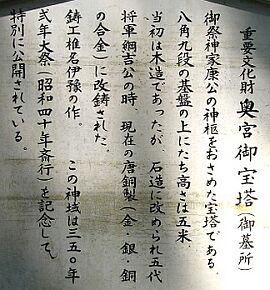 重要文化財 奥宮御宝塔(御墓所)
御祭神家康公の神柩をおさめた宝塔である。
八角九段の基盤の上にたち高さは五米、
当初は木造であったが 石造に改められ五代
将軍綱吉公の時 現在の唐銅製(金・銀・銅
の合金)に改鋳された。
鋳工椎名伊豫の作。 この神域は三五〇年
弐年大祭(昭和四十年斎行)を記念して、
特別に公開されている。